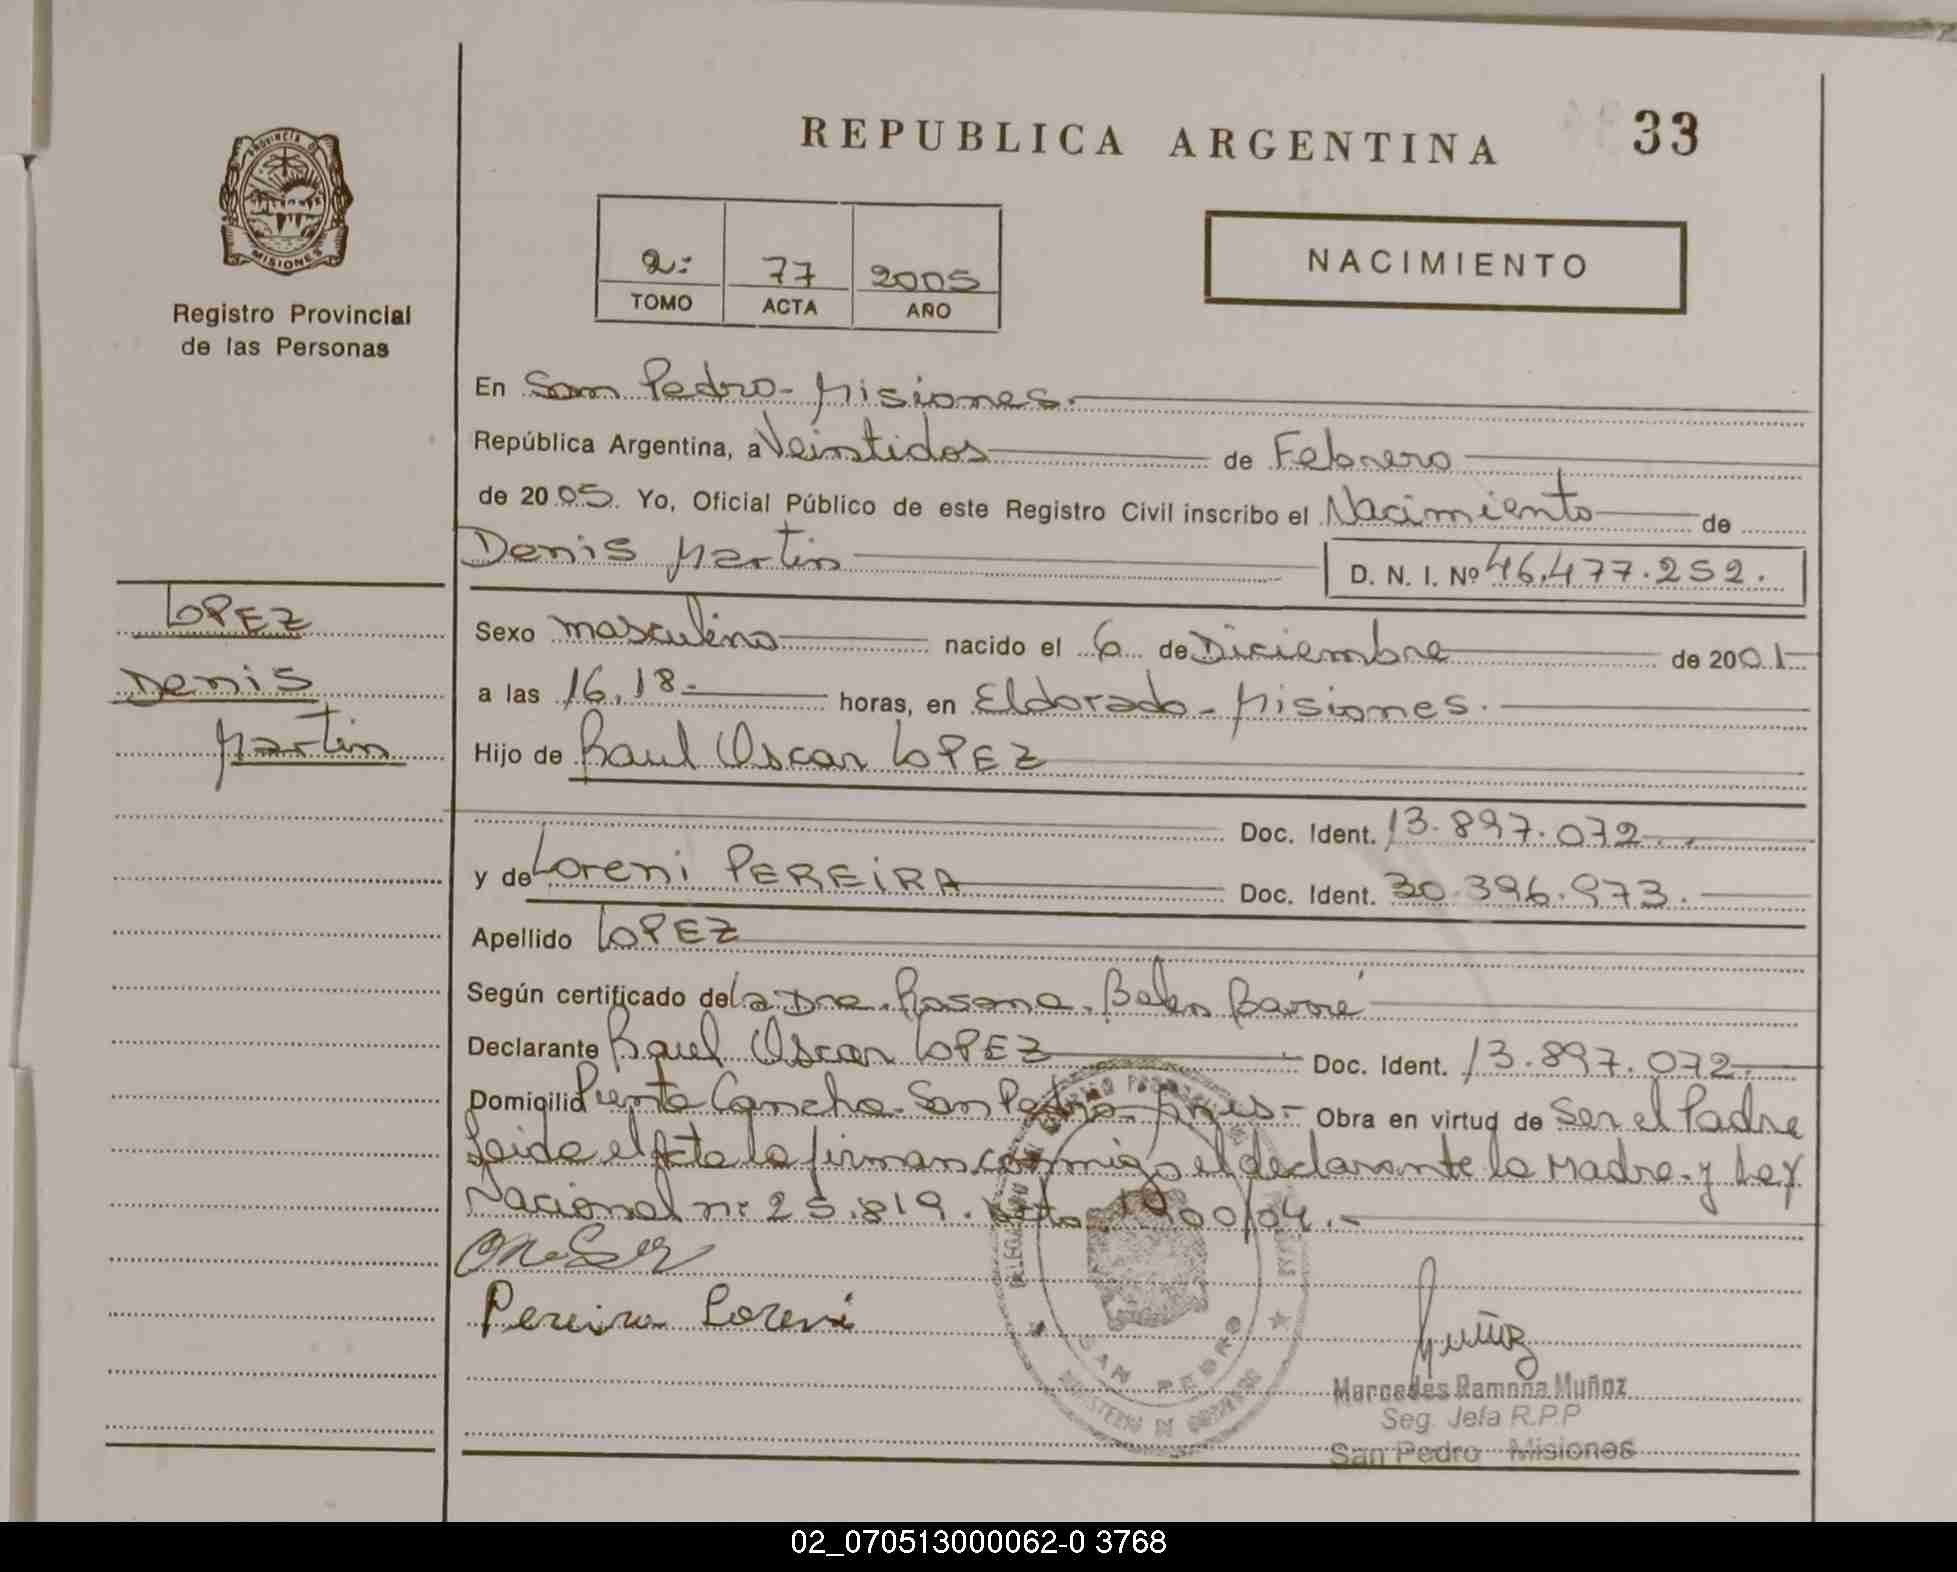 REPUBLICA ARGENTINA 33
PROVINCIA D
MISIONES
Registro Provincial
de las Personas
2: 77 2005
TOMO ACTA AÑO
NACIMIENTO
En San Pedro - Misiones.
República Argentina, a Veintidos de Febrero
de 2005. Yo, Oficial Público de este Registro Civil inscribo el Nacimiento de
Denis Martin D. N. I. Nº 46.477.252.
LOPEZ
Denis
Martin
Sexo masculino nacido el 6 de Diciembre de 2001
a las 16,18- horas, en Eldorado - Misiones.
Hijo de Raul Oscar LOPEZ
Doc. Ident. 13.897.072
y de Loreni PEREiRA Doc. Ident. 30.396.973.
Apellido LOPEZ
Según certificado de la Dra. Rosana Belen
Declarante Raul Oscar LOPEZ Doc. Ident. 13.897.072
Domicilio Cancha - San Pedro - Mnes - Obra en virtud de Ser el Padre
Leida el Acta la firman conmigo el declarante la Madre y Ley
Nacional n: 25.819. /04.-
Pereira Loreni
SAN PEDRO
MINISTERIO DE GOBIERNO
Muñoz
Mercedes Ramona Muñoz
Seg. Jefa R.P.P
San Pedro Misiones
02_070513000062-0 3768